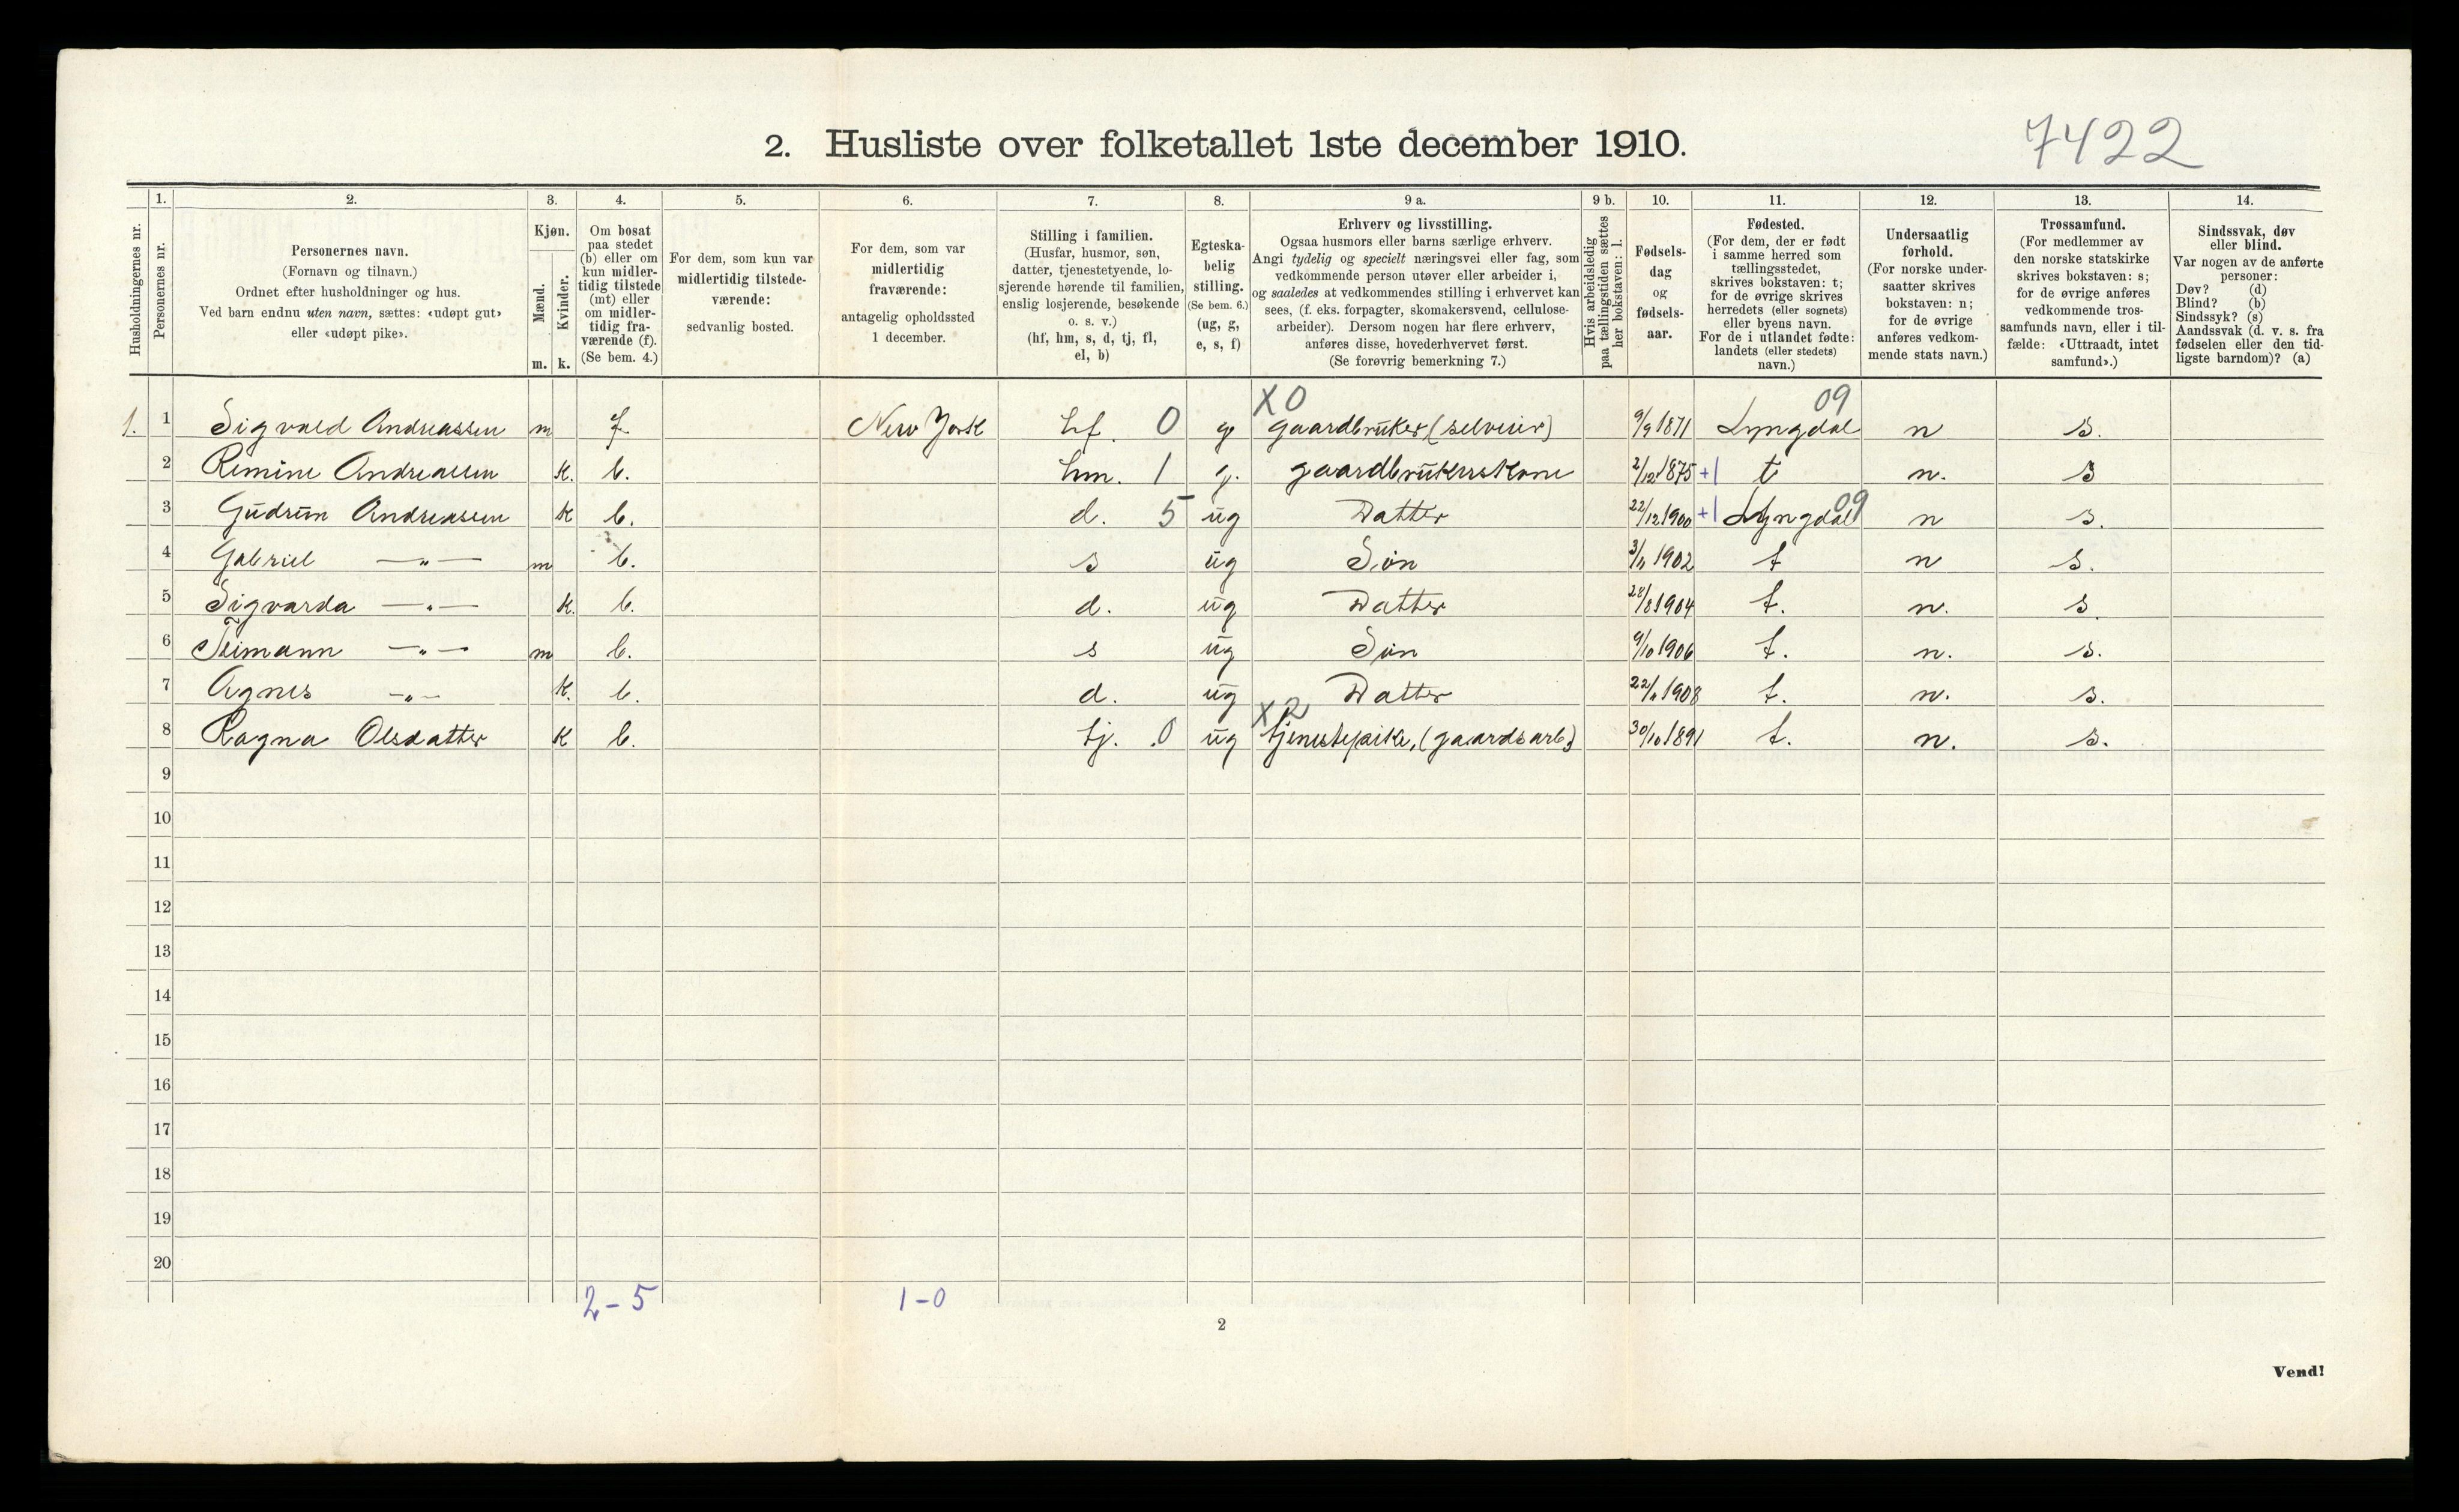 7422
2. Husliste over folketallet 1ste december 1910.
Husholdningernes nr.
1.
Personernes nr.
2.
Personernes navn.
(Fornavn og tilnavn.)
Ordnet efter husholdninger og hus.
Ved barn endnu uten navn, sættes: «udøpt gut»
eller «udøpt pike».
3.
Kjøn.
Mænd.
Kvinder.
m. k.
4.
Om bosat
paa stedet
(b) eller om
kun midler-
tidig tilstede
(mt) eller
om midler-
tidig fra-
værende (f).
(Se bem. 4.)
5.
For dem, som kun var
midlertidig tilstede-
værende:
sedvanlig bosted.
6.
For dem, som var
midlertidig
fraværende:
antagelig opholdssted
1 december.
7.
Stilling i familien.
(Husfar, husmor, søn,
datter, tjenestetyende, lo-
sjerende hørende til familien,
enslig losjerende, besøkende
o. s. v.)
(hf, hm, s, d, tj, fl,
el, b)
8.
Egteska-
belig
stilling.
(Se bem. 6.)
(ug, g,
e, s, f)
9 a.
Erhverv og livsstilling.
Ogsaa husmors eller barns særlige erhverv.
Angi tydelig og specielt næringsvei eller fag, som
vedkommende person utøver eller arbeider i,
og saaledes at vedkommendes stilling i erhvervet kan
sees, (f. eks. forpagter, skomakersvend, cellulose-
arbeider). Dersom nogen har flere erhverv,
anføres disse, hovederhvervet først.
(Se forøvrig bemerkning 7.)
9 b.
Hvis arbeidsledig
paa tællingstiden sættes
her bokstaven: l.
10.
Fødsels-
dag
og
fødsels-
aar.
11.
Fødested.
(For dem, der er født
i samme herred som
tællingsstedet,
skrives bokstaven: t;
for de øvrige skrives
herredets (eller sognets)
eller byens navn.
For de i utlandet fødte:
landets (eller stedets)
navn.)
12.
Undersaatlig
forhold.
(For norske under-
saatter skrives
bokstaven: n;
for de øvrige
anføres vedkom-
mende stats navn.)
13.
Trossamfund.
(For medlemmer av
den norske statskirke
skrives bokstaven: s;
for de øvrige anføres
vedkommende tros-
samfunds navn, eller i til-
fælde: «Uttraadt, intet
samfund».)
14.
Sindssvak, døv
eller blind.
Var nogen av de anførte
personer:
Døv? (d)
Blind? (b)
Sindssyk? (s)
Aandssvak (d. v. s. fra
fødselen eller den tid-
ligste barndom)? (a)
X0 09
1. 1 Sigvald Andreassen m f. New York hf. 0 g gaardbruker (selveier) 9/9 1871 Lyngdal n s.
2 Remine Andreassen K. b. hm. 1 g. gaardbrukerskone 2/12 1875 +1 t n. s
3 Gudrun Andreassen K b. d. 5 ug Datter 22/12 1900 +1 Lyngdal 09 n s.
4 Gabriel —"— m b. s ug Søn 1902 t n s.
5 Sigvarda —"— K. b. d. ug Datter 28/8 1904 t. n. s.
6 —"— m b. s ug Søn 9/10 1906 t. n. s.
7 Agnes —"— K. b. d. ug Datter 1908 t. n. s.
X2
8 Ragna Olsdatter K b. tj. .0 ug tjenestepike, (gaardsarb.) 30/10 1891 t. n. s.
9
10
11
12
13
14
15
16
17
18
19
20
2-5 1-0
2
Vend!